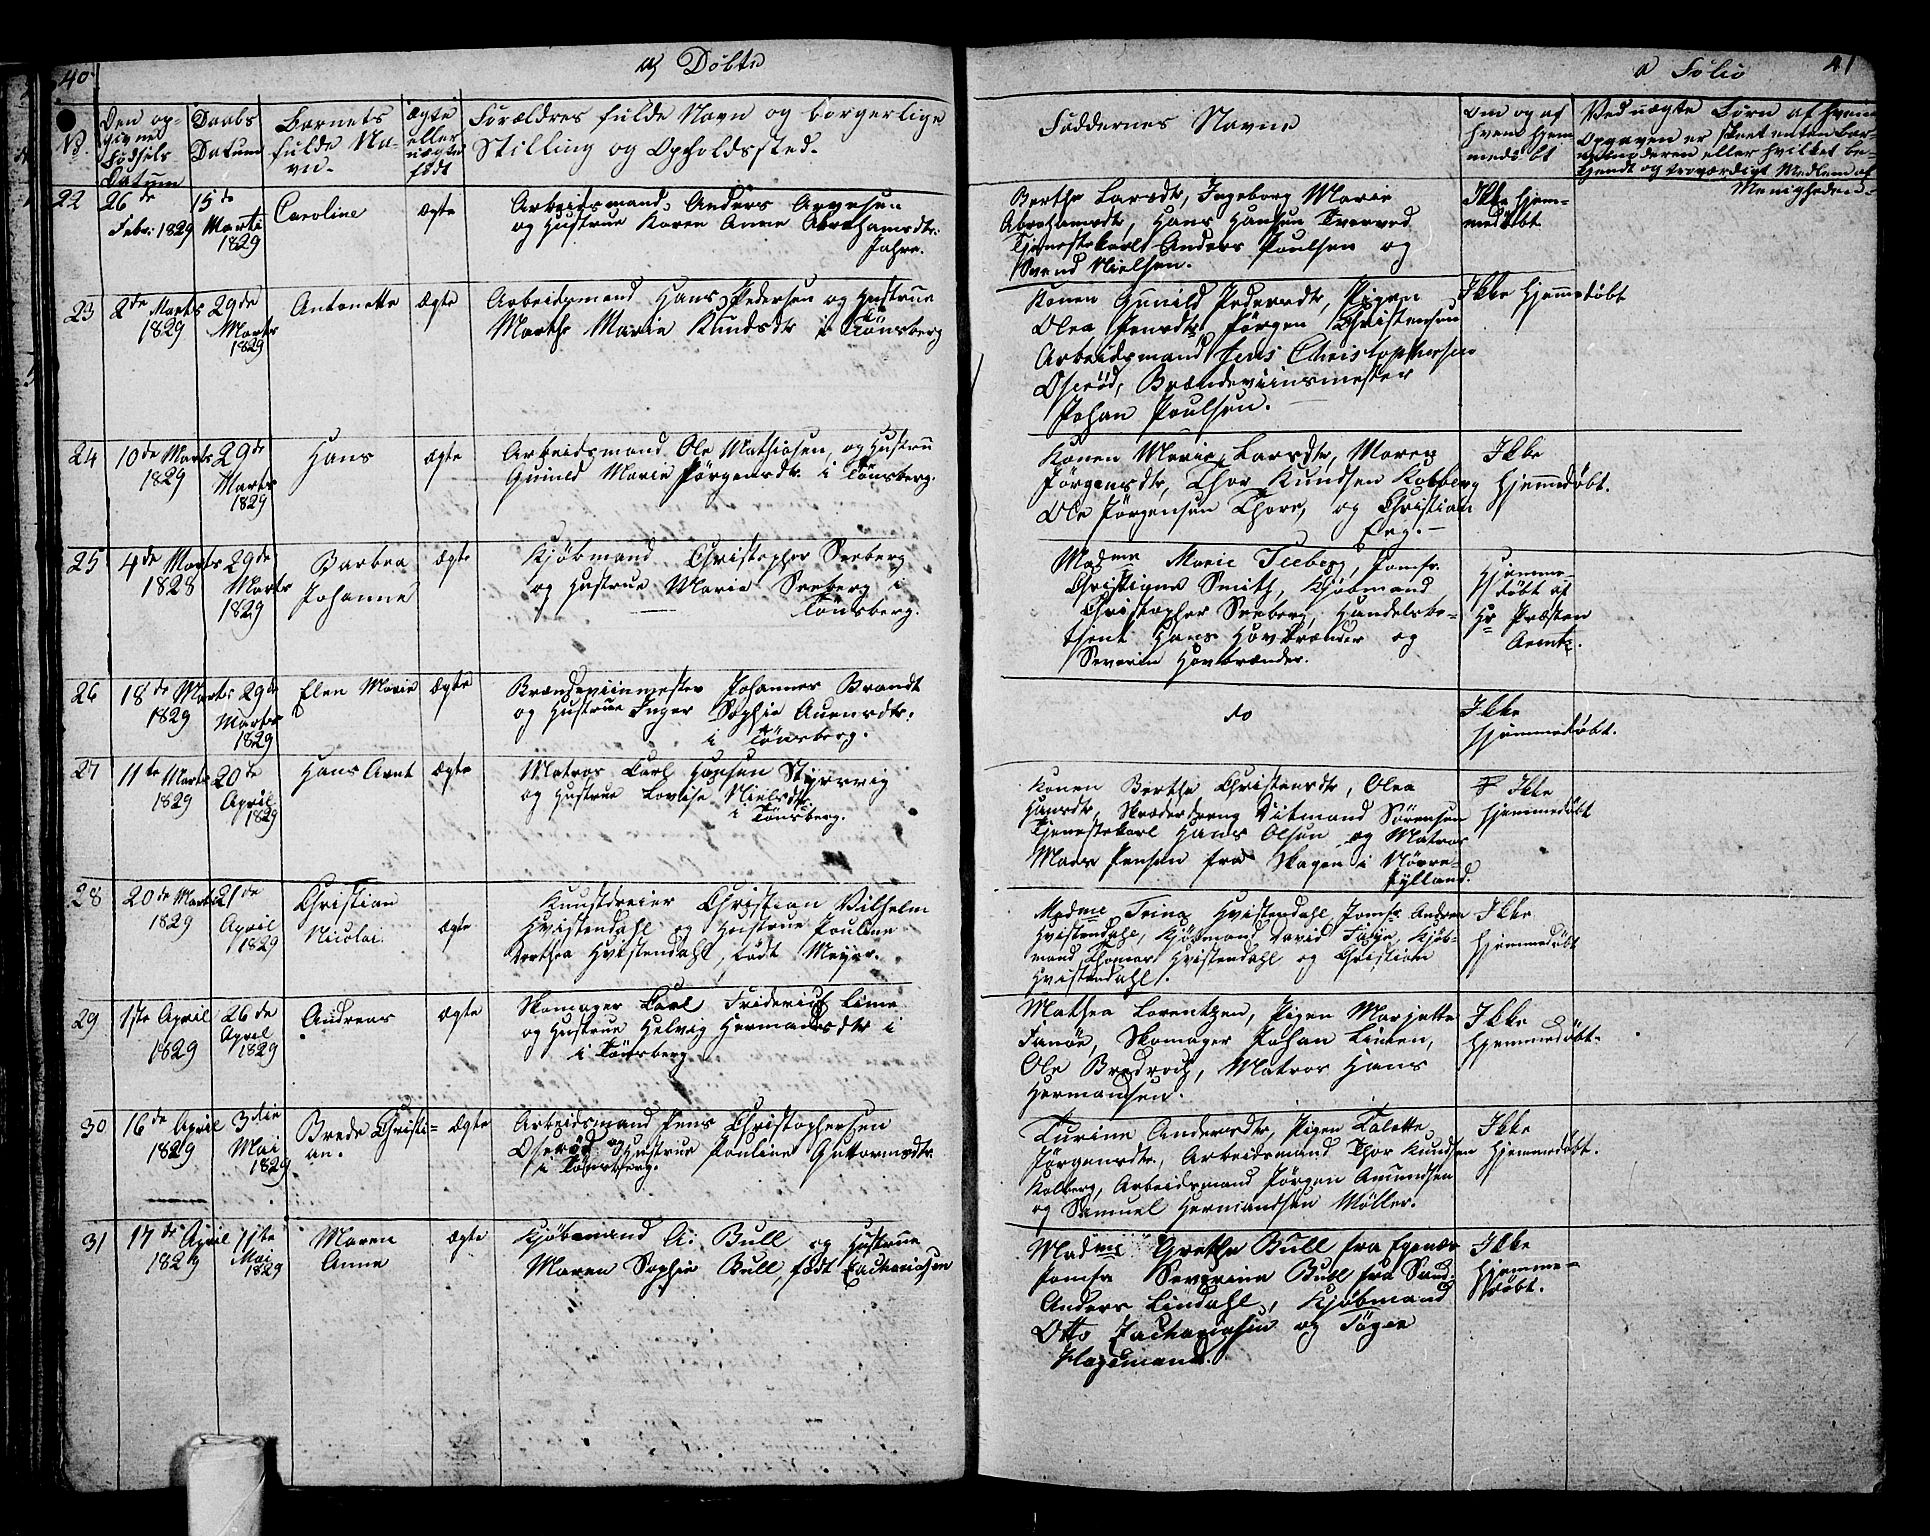 40.
a) Döbte
No
Den op-
givne
Födsels
Datum
Daabs
Datum
Barnets
fulde Na-
vn.
ægte
eller
uægte
födt
Forældres fulde Navn og borgerlige
Stilling og Opholdssted.
22
26de
Febr: 1829
15de
Marts
1829
Caroline
ægte
Arbeidsmand, Anders Arvesen
og Hustrue Karen Anne Abrahamsdtr:
Jahre.
23
2de Marts
1829
29de
Marts
1829
Antonette
ægte
Arbeidsmand Hans Pedersen og Hustrue
Marthe Marie Knudsdtr i Tönsberg
24
10de Marts
1829
29de
Marts
1829
Hans
ægte
Arbeidsmand Ole Mathiesen, og Hustrue
Gunild Marie Jörgensdtr i Tönsberg.
25
4de Marts
1828
29de
Marts
1829
Barbra
Johanne
ægte
Kjöbmand Christopher Seeberg
og Hustrue Maria Seeberg i
Tönsberg.
26
18de Marts
1829
29de
Marts
1829
Elen Marie
ægte
Brændeviinmester Johannes Brandt
og Hustrue Inger Sophie Auensdtr.
i Tönsberg.
27
11te Marts
1829
20de
April
1829
Hans Arnt
ægte
Matros Carl Hansen
og Hustrue Lovise Nielsdtr
i Tönsberg.
28
20de Marts
1829
21de
April
1829
Christian
Nicolai.
ægte
Kunstdreier Christian Vilhelm
Hvistendahl og Hustrue Pauline
Dorthea Hvistendahl, födt Meyer.
29
1ste April
1829
26de
April
1829
Andreas
ægte
Skomager Carl Friderich Lime
og Hustrue Helvig Hermansdtr i
i Tönsberg
30
16de April
1829
3die
Mai
1829
Brede Christi-
an.
ægte
Arbeidsmand Jens Christophersen
Oseröd og Hustrue Pauline Guttormsdtr
i Tönsberg.
31
17de April
1829
11te
Mai
1829
Maren
Anne
ægte
Kjöbmand A: Bull og Hustrue
Maren Sophie Bull, födt Zachariasen
a Folio
41
Faddernes Navne
Om og af
hvem Hjem-
medöbt
Ved uægte Börn af hvem
Opgaven er skeet enten Bar-
nemoderen eller hvilket be-
kjendt og troværdigt Medlem af
Menigheden.
Berthe Larsdtr, Ingeborg Marie
Abrahamsdtr, Hans Hansen Tverved
Tjenestekarl Anders Poulsen og
Svend Nielsen.
Ikke Hjem-
medöbt.
Konen Gunild Pedersdtr, Pigen
Olea Jensdtr Jörgen Christensen
Arbeidsmand Jens Christophersen
Oseröd, Brændeviinsmester
Johan Poulsen.
Ikke Hjemedöbt
Konen Marie Larsdtr, Maren
Jörgensdtr, Thor Knudsen Kolberg
Ole Jörgensen Thore, og Christian
Eeg. –
Ikke
Hjemmedöbt.
Madme Marie Seeberg, Jomfr.
Christiane Smith, Kjöbmand
Christopher Seeberg, Handelsbe-
tjent Hans Hovbrænder og
Severin Hovbrænder.
Hjemme-
döbt af
Hr Præsten
Arentz.
do
Ikke
Hjemmedöbt.
Konen Berthe Christensdtr, Olea
Hansdtr, Skrædersvend Ditmand Sörensen
Tjenestekarl Hans Olsen og Matros
Mads Jensen fra Skagen i Nörre-
Jylland.
Ikke
Hjemmedöbt
Madme Trina Hvistendahl, Jomfr Andrea
Hvistendahl, Kjöbmand David Faye, Kjöb-
mand Thomas Hvistendahl og Christian
Hvistendahl.
Ikke
Hjemmedöbt
Mathea Lorentzen, Pigen Marjette
Fanöe, Skomager Johan Limen,
Ole Bredroch, Matros Hans
Hermansen.
Ikke
Hjemmedöbt.
Turine Andersdtr, Pigen Talette
Jörgensdtr, Arbeidsmand Thor Knudsen
Kolberg, Arbeidsmand Jörgen Amundsen
og Samuel Hermandsen Möller.
Ikke
Hjemmedöbt.
Madme Grethe Bull fra Egenæs
Jomfr Severine Bull fra Sand.
Anders Lindahl, Kjöbmand
Otto Zachariasen og Töger
Hagemand.
Ikke
Hjemme-
döbt.